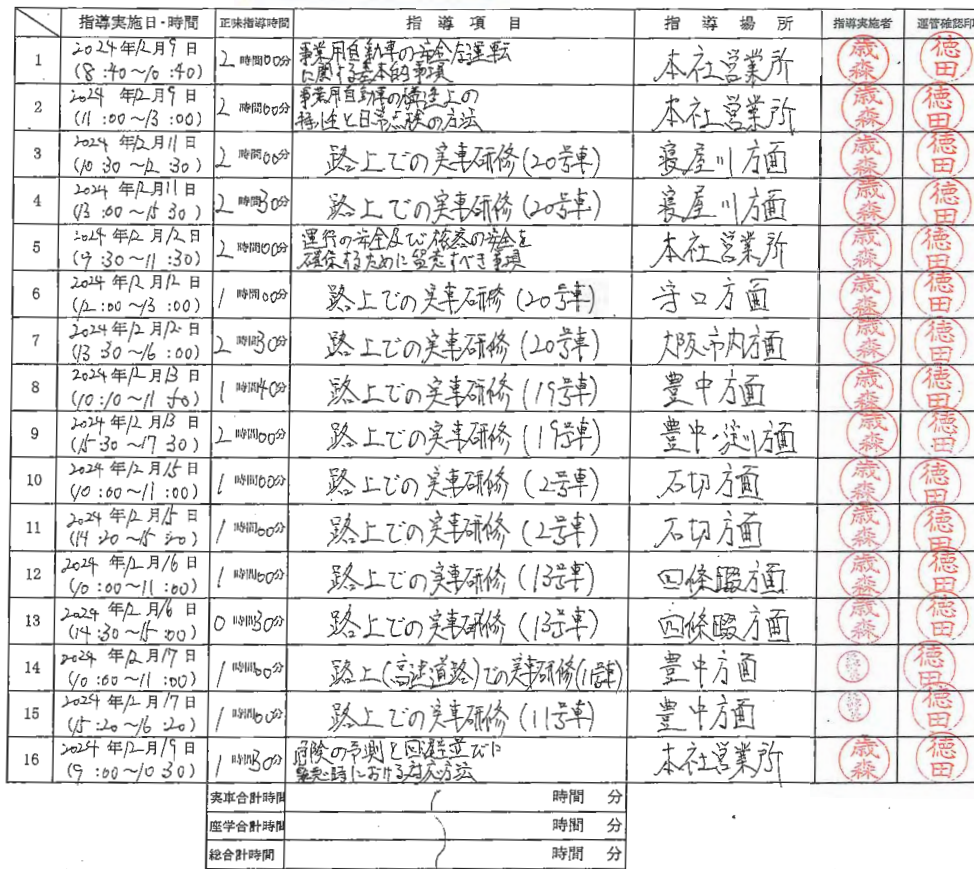 指導実施日・時間 正味指導時間 指導項目 指導場所 指導実施者 運管確認印
1 2024年12月9日 (8:40～10:40) 2時間00分 事業用自動車の安全な運転に関する基本的事項 本社営業所 歳森 徳田
2 2024年12月9日 (11:00～13:00) 2時間00分 事業用自動車の構造上の特性と日常点検の方法 本社営業所 歳森 徳田
3 2024年12月11日 (10 30～12 30) 2時間00分 路上での実車研修(20号車) 寝屋川方面 歳森 徳田
4 2024年12月11日 (13:00～15 30) 2時間30分 路上での実車研修(20号車) 寝屋川方面 歳森 徳田
5 2024年12月12日 (9:30～11:30) 2時間00分 運行の安全及び旅客の安全を確保するために留意すべき事項 本社営業所 歳森 徳田
6 2024年12月12日 (12:00～13:00) 1時間00分 路上での実車研修(20号車) 守口方面 歳森 徳田
7 2024年12月12日 (13 30～16:00) 2時間30分 路上での実車研修(20号車) 大阪市内方面 歳森 徳田
8 2024年12月13日 (10:10～11 50) 1時間40分 路上での実車研修(19号車) 豊中方面 歳森 徳田
9 2024年12月13日 (15:30～17 30) 2時間00分 路上での実車研修(19号車) 豊中・淀川方面 歳森 徳田
10 2024年12月15日 (10:00～11:00) 1時間00分 路上での実車研修(2号車) 石切方面 歳森 徳田
11 2024年12月15日 (14 20～15 20) 1時間00分 路上での実車研修(2号車) 石切方面 歳森 徳田
12 2024年12月16日 (10:00～11:00) 1時間00分 路上での実車研修(13号車) 四條畷方面 歳森 徳田
13 2024年12月16日 (14:30～15:00) 0時間30分 路上での実車研修(13号車) 四條畷方面 歳森 徳田
14 2024年12月17日 (10:00～11:00) 1時間00分 路上(高速道路)での実車研修(11号車) 豊中方面 徳田
15 2024年12月17日 (15:20～16:20) 1時間00分 路上での実車研修(11号車) 豊中方面 徳田
16 2024年12月19日 (9:00～10 30) 1時間30分 危険の予測と回避並びに緊急時における対応方法 本社営業所 歳森 徳田
実車合計時間 時間 分
座学合計時間 時間 分
総合計時間 時間 分